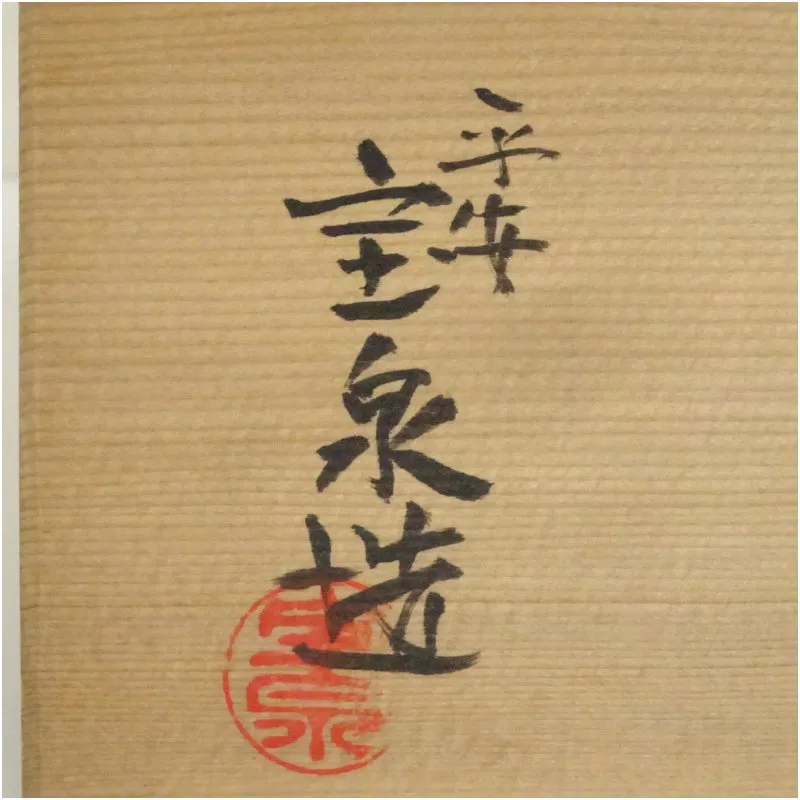 平安
宝泉造